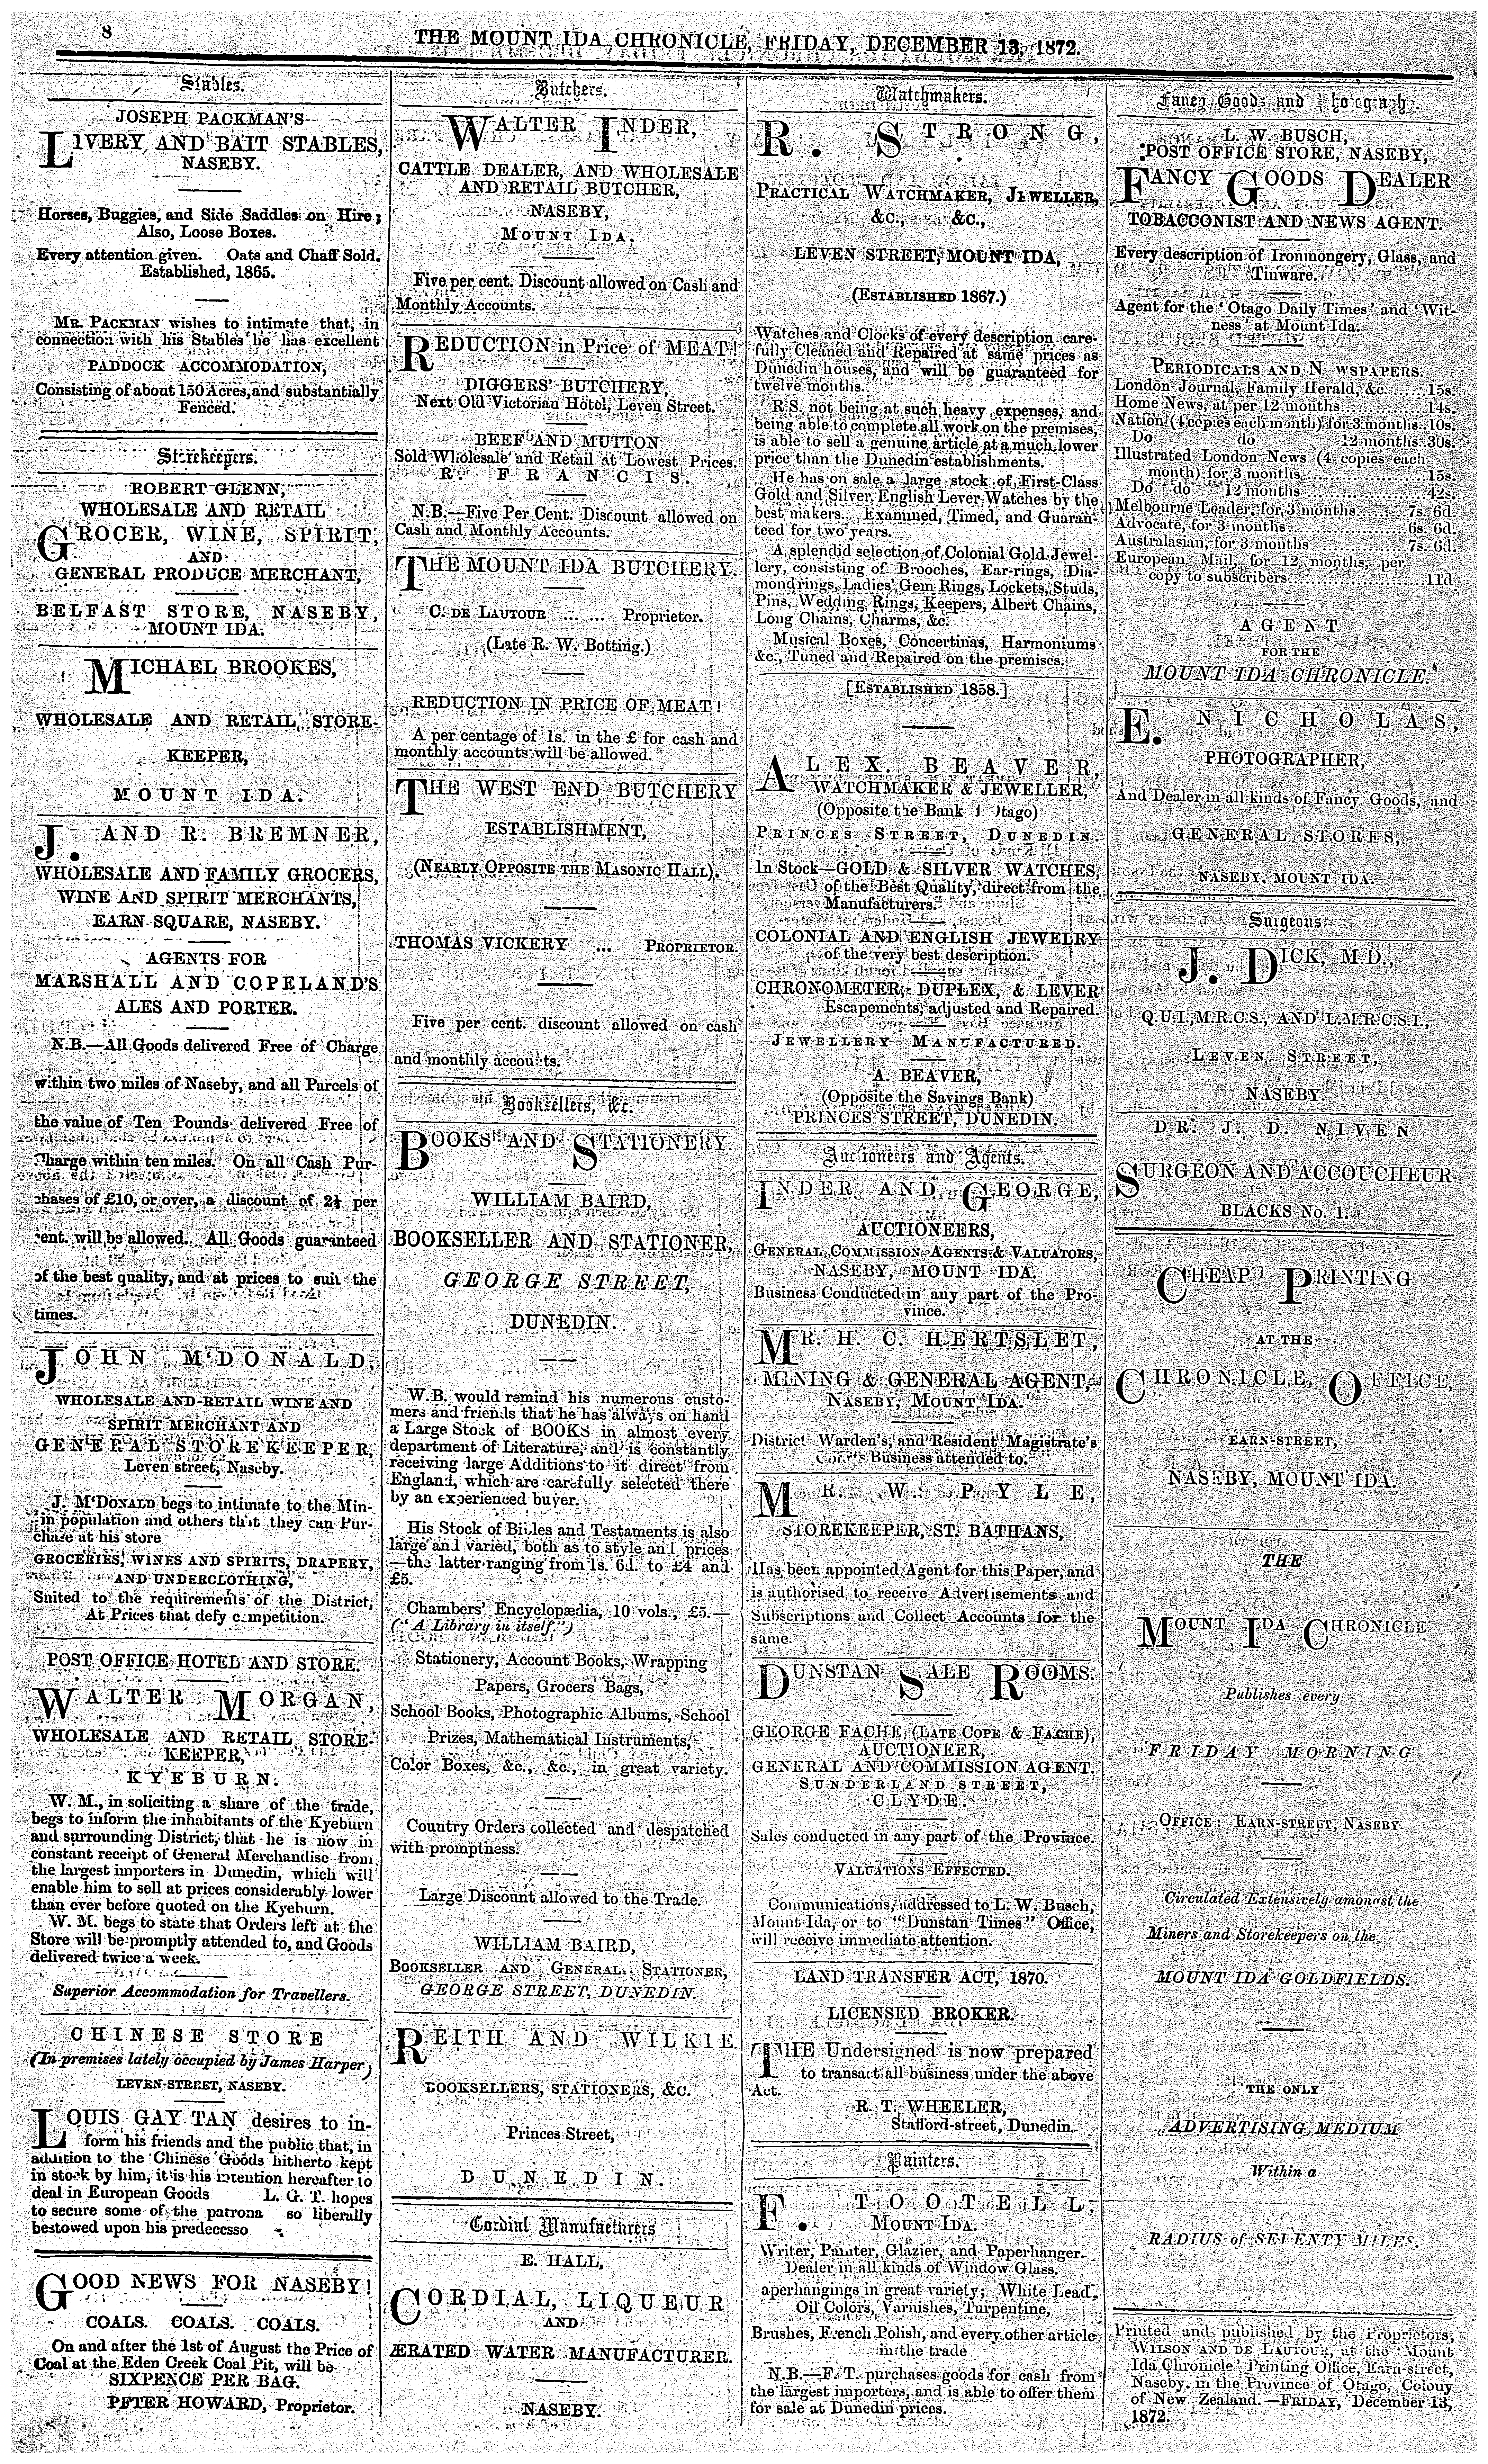 8
THE MOUNT IDA CHRONICLE, FRIDAY, DECEMBER 13, 1872.
Stables.
JOSEPH PACKMAN'S
LIVERY AND BAIT STABLES,
NASEBY.
Horses, Buggies, and Side Saddles on Hire;
Also, Loose Boxes.
Every attention given. Oats and Chaff Sold.
Established, 1865.
MR. PACKMAN wishes to intimate that, in
connection with his Stables he has excellent
PADDOCK ACCOMMODATION,
Consisting of about 150 Acres, and substantially
Fenced.
Storekeepers.
ROBERT GLENN,
WHOLESALE AND RETAIL
GROCER, WINE, SPIRIT,
AND
GENERAL PRODUCE MERCHANT,
BELFAST STORE, NASEBY,
MOUNT IDA.
MICHAEL BROOKES,
WHOLESALE AND RETAIL STORE-
KEEPER,
MOUNT IDA.
J. AND R. BREMNER,
WHOLESALE AND FAMILY GROCERS,
WINE AND SPIRIT MERCHANTS,
EARN SQUARE, NASEBY.
AGENTS FOR
MARSHALL AND COPELAND'S
ALES AND PORTER.
N.B.—All Goods delivered Free of Charge
within two miles of Naseby, and all Parcels of
the value of Ten Pounds delivered Free of
Charge within ten miles. On all Cash Pur-
chases of £10, or over, a discount of 2½ per
cent. will be allowed. All Goods guaranteed
of the best quality, and at prices to suit the
times.
JOHN M'DONALD,
WHOLESALE AND RETAIL WINE AND
SPIRIT MERCHANT AND
GENERAL STOREKEEPER,
Leven street, Naseby.
J. M'DONALD begs to intimate to the Min-
in population and others that they can Pur-
chase at his store
GROCERIES, WINES AND SPIRITS, DRAPERY,
AND UNDERCLOTHING,
Suited to the requirements of the District,
At Prices that defy competition.
POST OFFICE HOTEL AND STORE.
WALTER MORGAN,
WHOLESALE AND RETAIL STORE-
KEEPER,
KYEBURN.
W. M., in soliciting a share of the trade,
begs to inform the inhabitants of the Kyeburn
and surrounding District, that he is now in
constant receipt of General Merchandise from
the largest importers in Dunedin, which will
enable him to sell at prices considerably lower
than ever before quoted on the Kyeburn.
W. M. begs to state that Orders left at the
Store will be promptly attended to, and Goods
delivered twice a week.
Superior Accommodation for Travellers.
CHINESE STORE
(In premises lately occupied by James Harper)
LEVEN-STREET, NASEBY.
LOUIS GAY TAN desires to in-
form his friends and the public that, in
addition to the Chinese Goods hitherto kept
in stock by him, it is his intention hereafter to
deal in European Goods L. G. T. hopes
to secure some of the patrona so liberally
bestowed upon his predecesso
GOOD NEWS FOR NASEBY!
COALS. COALS. COALS.
On and after the 1st of August the Price of
Coal at the Eden Creek Coal Pit, will be
SIXPENCE PER BAG.
PETER HOWARD, Proprietor.
Butchers.
WALTER INDER,
CATTLE DEALER, AND WHOLESALE
AND RETAIL BUTCHER,
NASEBY,
MOUNT IDA.
Five per cent. Discount allowed on Cash and
Monthly Accounts.
REDUCTION in Price of MEAT!
DIGGERS' BUTCHERY,
Next Old Victorian Hotel, Leven Street.
BEEF AND MUTTON
Sold Wholesale and Retail at Lowest Prices.
R. FRANCIS.
N.B.—Five Per Cent. Discount allowed on
Cash and Monthly Accounts.
THE MOUNT IDA BUTCHERY.
C. DE LAUTOUR ... ... Proprietor.
(Late R. W. Botting.)
REDUCTION IN PRICE OF MEAT!
A per centage of 1s. in the £ for cash and
monthly accounts will be allowed.
THE WEST END BUTCHERY
ESTABLISHMENT,
(NEARLY OPPOSITE THE MASONIC HALL).
THOMAS VICKERY ... PROPRIETOR.
Five per cent. discount allowed on cash
and monthly accounts.
Booksellers, &c.
BOOKS AND STATIONERY.
WILLIAM BAIRD,
BOOKSELLER AND STATIONER,
GEORGE STREET,
DUNEDIN.
W.B. would remind his numerous custo-
mers and friends that he has always on hand
a Large Stock of BOOKS in almost every
department of Literature, and is constantly
receiving large Additions to it direct from
England, which are carefully selected there
by an experienced buyer.
His Stock of Bibles and Testaments is also
large and varied, both as to style and prices
—the latter ranging from 1s. 6d. to £4 and
£5.
Chambers' Encyclopædia, 10 vols., £5.—
("A Library in itself")
Stationery, Account Books, Wrapping
Papers, Grocers Bags,
School Books, Photographic Albums, School
Prizes, Mathematical Instruments,
Color Boxes, &c., &c., in great variety.
Country Orders collected and despatched
with promptness.
Large Discount allowed to the Trade.
WILLIAM BAIRD,
BOOKSELLER AND GENERAL STATIONER,
GEORGE STREET, DUNEDIN.
REITH AND WILKIE
BOOKSELLERS, STATIONERS, &C.
Princes Street,
DUNEDIN.
Cordial Manufacturers
E. HALL,
CORDIAL, LIQUEUR
AND
ÆRATED WATER MANUFACTURER.
NASEBY.
Watchmakers.
R. STRONG,
PRACTICAL WATCHMAKER, JEWELLER,
&c., &c.,
LEVEN STREET, MOUNT IDA,
(ESTABLISHED 1867.)
Watches and Clocks of every description care-
fully Cleaned and Repaired at same prices as
Dunedin houses, and will be guaranteed for
twelve months.
R.S. not being at such heavy expenses, and
being able to complete all work on the premises,
is able to sell a genuine article at a much lower
price than the Dunedin establishments.
He has on sale a large stock of First-Class
Gold and Silver English Lever Watches by the
best makers. Examined, Timed, and Guaran-
teed for two years.
A splendid selection of Colonial Gold Jewel-
lery, consisting of Brooches, Ear-rings, Dia-
mond rings, Ladies' Gem Rings, Lockets, Studs,
Pins, Wedding Rings, Keepers, Albert Chains,
Long Chains, Charms, &c.
Musical Boxes, Concertinas, Harmoniums
&c., Tuned and Repaired on the premises.
[ESTABLISHED 1858.]
ALEX. BEAVER,
WATCHMAKER & JEWELLER,
(Opposite the Bank Otago)
PRINCES STREET, DUNEDIN.
In Stock—GOLD & SILVER WATCHES,
of the Best Quality, direct from the
Manufacturers.
COLONIAL AND ENGLISH JEWELRY
of the very best description.
CHRONOMETER, DUPLEX, & LEVER
Escapements, adjusted and Repaired.
JEWELLERY MANUFACTURED.
A. BEAVER,
(Opposite the Savings Bank)
PRINCES STREET, DUNEDIN.
Auctioneers and Agents.
INDER AND GEORGE,
AUCTIONEERS,
GENERAL COMMISSION AGENTS & VALUATORS,
NASEBY, MOUNT IDA.
Business Conducted in any part of the Pro-
vince.
MR. H. C. HERTSLET,
MINING & GENERAL AGENT,
NASEBY, MOUNT IDA.
District Warden's, and Resident Magistrate's
Court's Business attended to.
MR. W. PYLE,
STOREKEEPER, ST. BATHANS,
Has been appointed Agent for this Paper, and
is authorised to receive Advertisements and
Subscriptions and Collect Accounts for the
same.
DUNSTAN SALE ROOMS.
GEORGE FACHE (LATE COPE & FACHE),
AUCTIONEER,
GENERAL AND COMMISSION AGENT.
SUNDERLAND STREET,
CLYDE.
Sales conducted in any part of the Province.
VALUATIONS EFFECTED.
Communications, addressed to L. W. Busch,
Mount Ida, or to "Dunstan Times" Office,
will receive immediate attention.
LAND TRANSFER ACT, 1870.
LICENSED BROKER.
THE Undersigned is now prepared
to transact all business under the above
Act.
R. T. WHEELER,
Stafford-street, Dunedin.
Painters.
F. TOOTELL,
MOUNT IDA.
Writer, Painter, Glazier, and Paperhanger.
Dealer in all kinds of Window Glass.
aperhangings in great variety; White Lead,
Oil Colors, Varnishes, Turpentine,
Brushes, French Polish, and every other article
in the trade
N.B.—F. T. purchases goods for cash from
the largest importers, and is able to offer them
for sale at Dunedin prices.
Fancy Goods and Photograph
L. W. BUSCH,
POST OFFICE STORE, NASEBY,
FANCY GOODS DEALER
TOBACCONIST AND NEWS AGENT.
Every description of Ironmongery, Glass, and
Tinware.
Agent for the 'Otago Daily Times' and 'Wit-
ness' at Mount Ida.
PERIODICALS AND N WSPAPERS.
London Journal, Family Herald, &c. ......15s.
Home News, at per 12 months...............14s.
Nation (4 copies each month) for 3 months..10s.
Do do 12 months..30s.
Illustrated London News (4 copies each
month) for 3 months....................15s.
Do do 12 months ....................42s.
Melbourne Leader, for 3 months......7s. 6d.
Advocate, for 3 months ................6s. 6d.
Australasian, for 3 months ............7s. 6d.
European Mail, for 12 months, per
copy to subscribers......................11d
AGENT
FOR THE
MOUNT IDA CHRONICLE.
E. NICHOLAS,
PHOTOGRAPHER,
And Dealer in all kinds of Fancy Goods, and
GENERAL STORES,
NASEBY, MOUNT IDA.
Surgeons
J. DICK, M.D.,
Q.U.I., M.R.C.S., AND L.M.R.C.S.I.,
LEVEN STREET,
NASEBY.
DR. J. D. NIVEN
SURGEON AND ACCOUCHEUR
BLACKS No. 1.
CHEAP PRINTING
AT THE
CHRONICLE OFFICE,
EARN-STREET,
NASEBY, MOUNT IDA.
THE
MOUNT IDA CHRONICLE
Publishes every
FRIDAY MORNING
OFFICE: EARN-STREET, NASEBY.
Circulated Extensively amongst the
Miners and Storekeepers on the
MOUNT IDA GOLDFIELDS.
THE ONLY
ADVERTISING MEDIUM
Within a
RADIUS of SEVENTY MILES.
Printed and published by the Proprietors,
WILSON AND DE LAUTOUR, at the Mount
Ida Chronicle Printing Office, Earn-street,
Naseby, in the Province of Otago, Colony
of New Zealand.—FRIDAY, December 13,
1872.